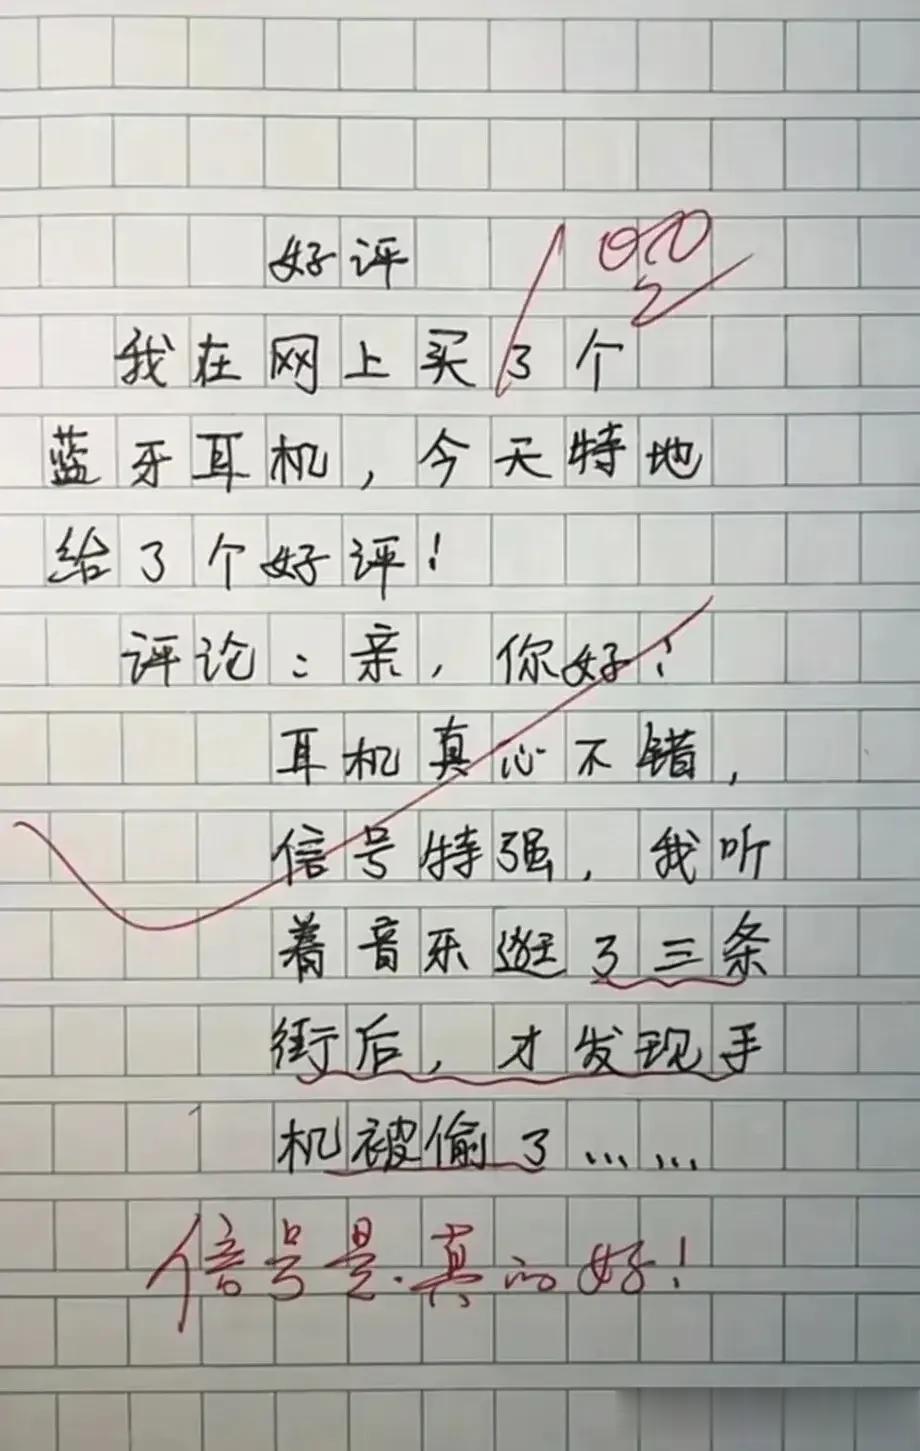 好评
100
我在网上买了个
蓝牙耳机，今天特地
给了个好评！
评论：亲，你好！
耳机真心不错，
信号特强，我听
着音乐逛了三条
街后，才发现手
机被偷了……
信号是真的好！